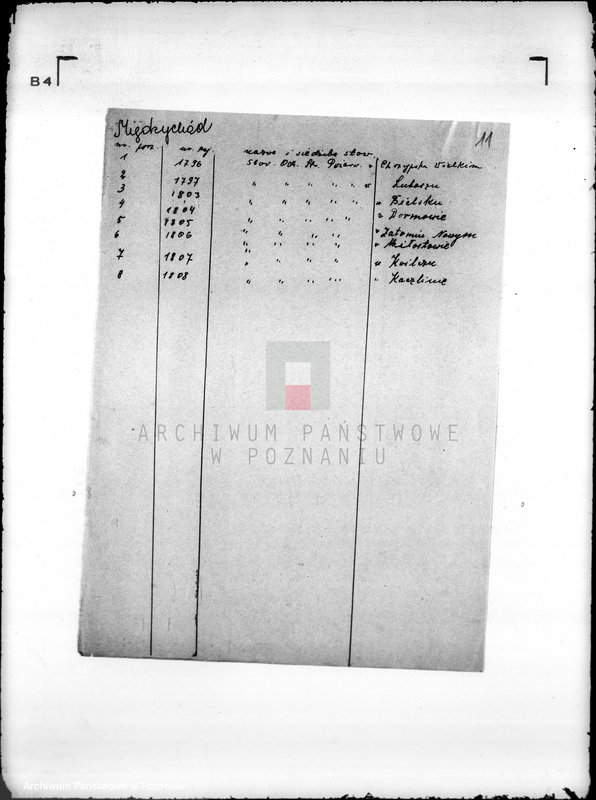 B4
Międzychód
11
nr. porz. nr. sy. nazwa i siedziba stow.
1 1796 Stow. Och. Str. Pożarn. w Chrzypsku Wielkim
2 1797 " " " " w Lubaszu
3 1803 " " " " " Bielsku
4 1804 " " " " " Dormowie
5 1805 " " " " " Zatomiu Nowym
6 1806 " " " " " Miłostowie
7 1807 " " " " " Kwilczu
8 1808 " " " " " Kaczlinie
ARCHIWUM PAŃSTWOWE
W POZNANIU
Archiwum Państwowe w Poznaniu